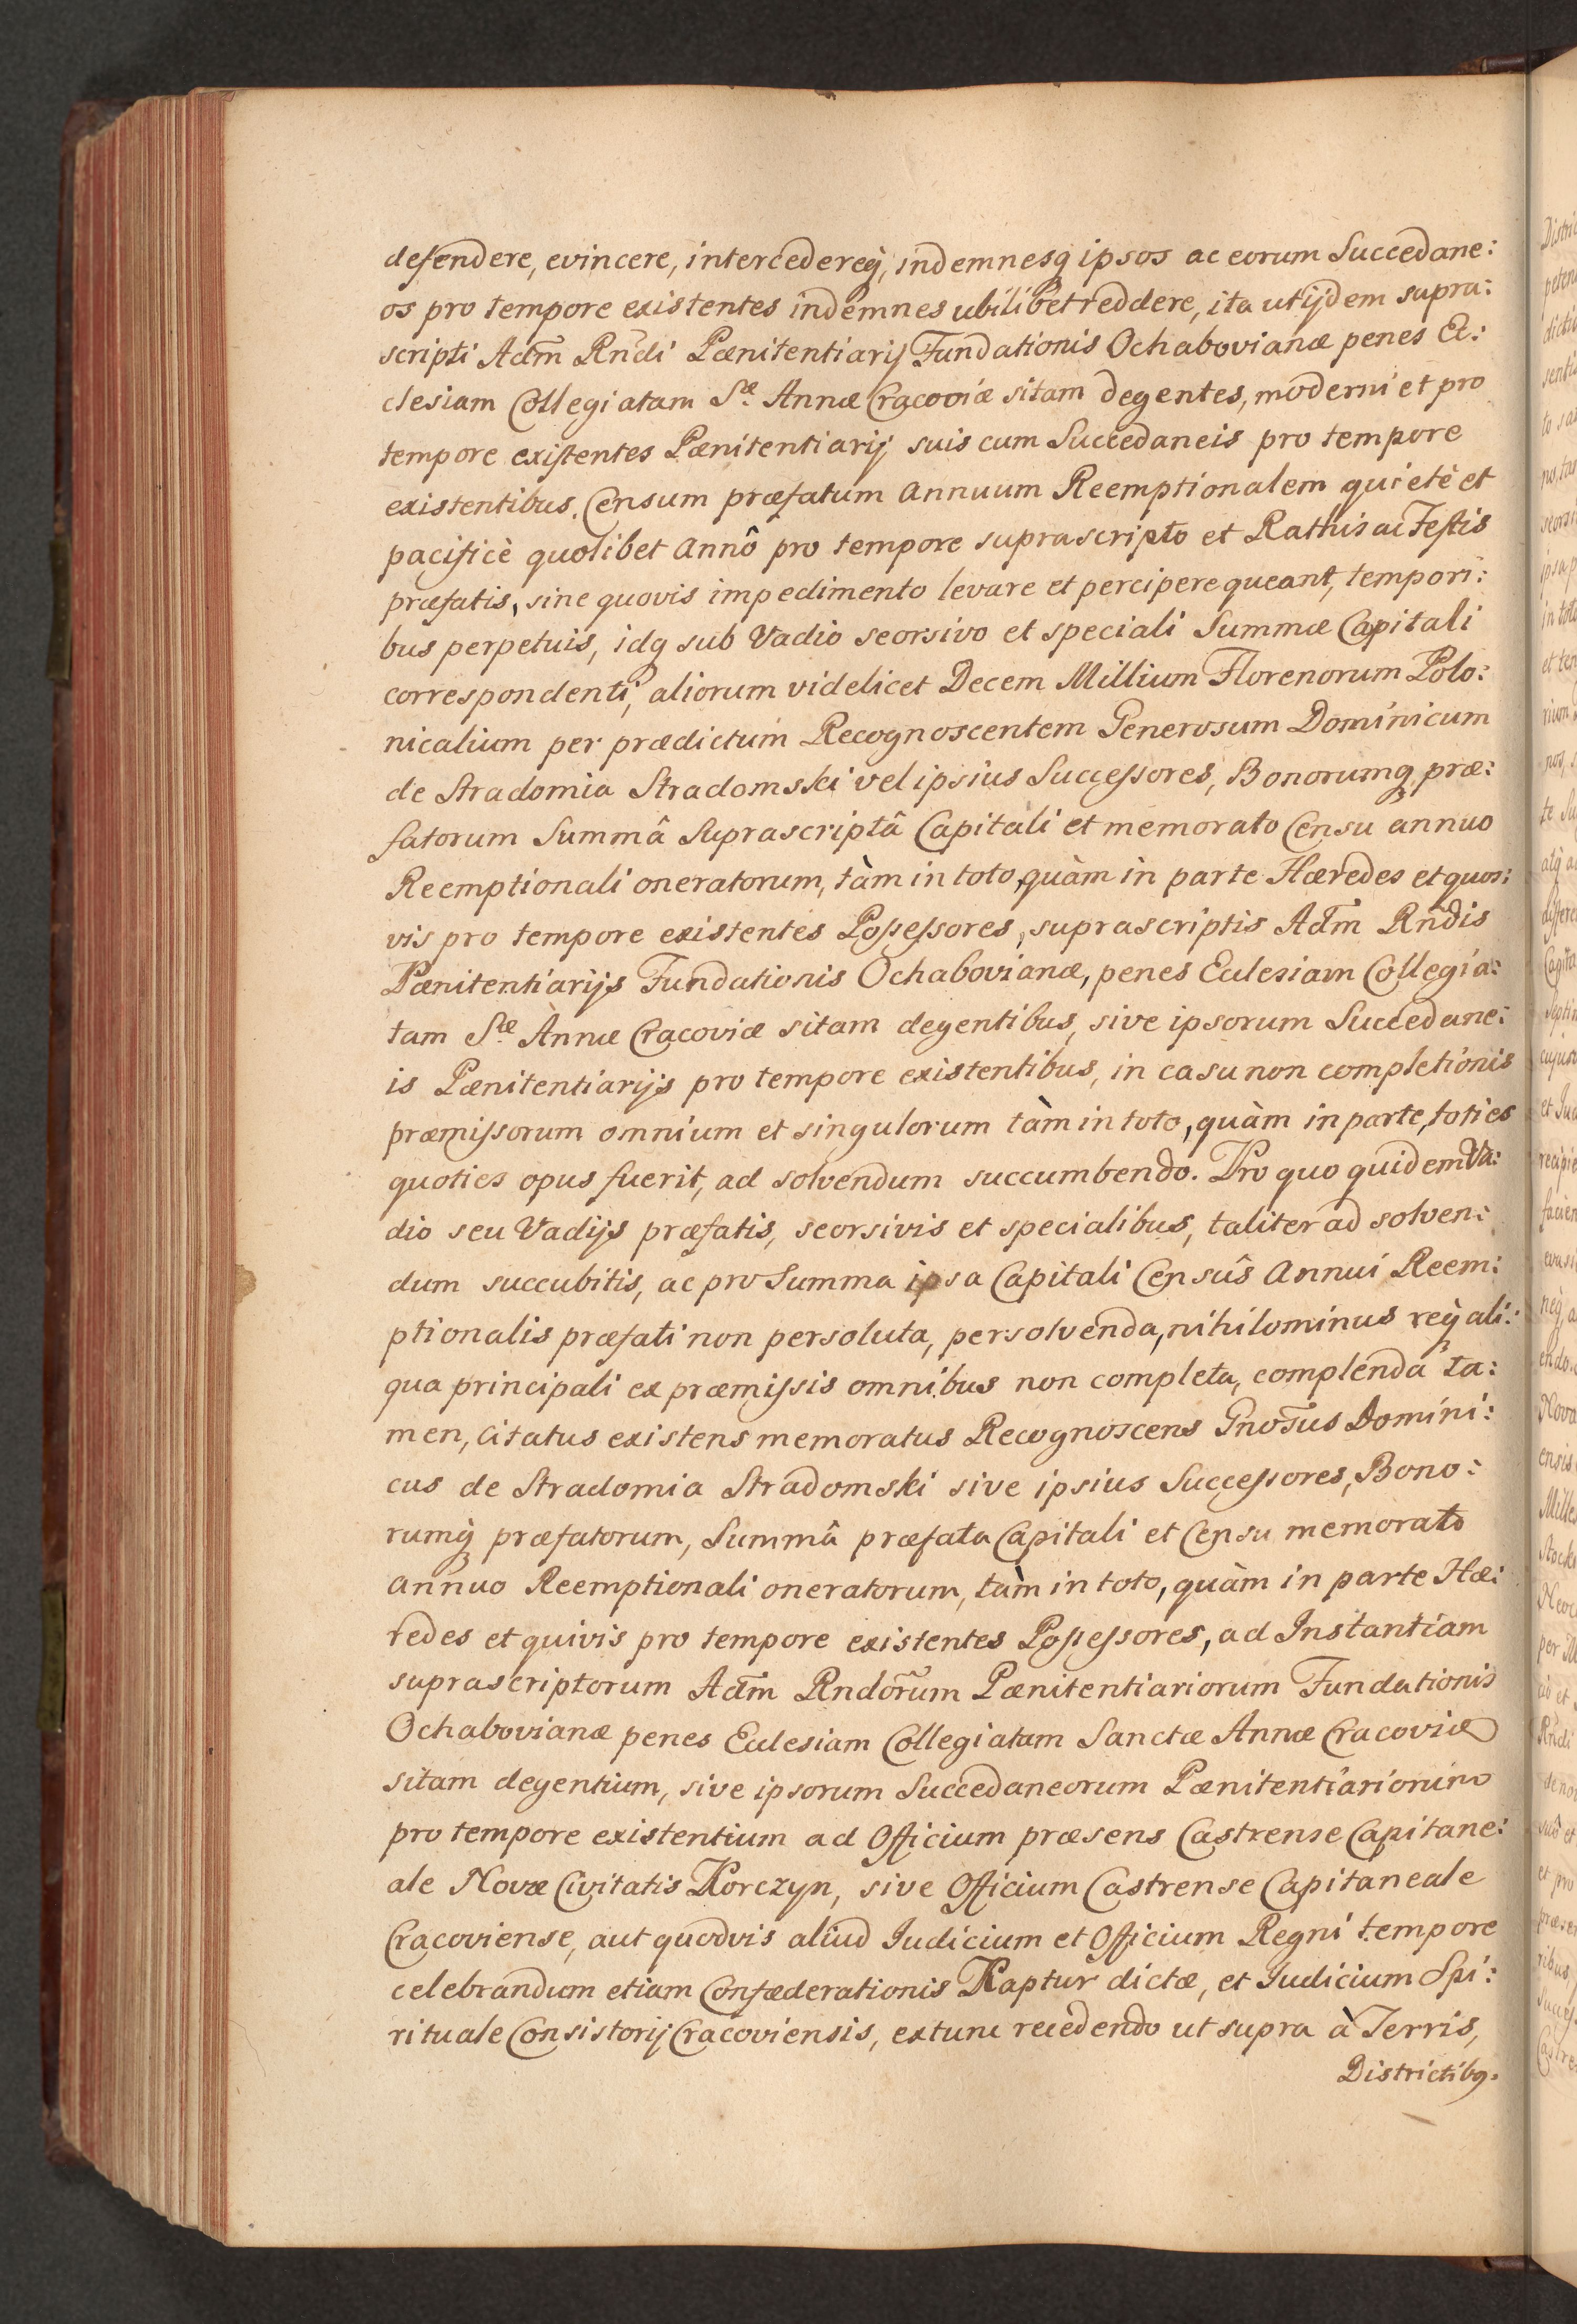 defendere, evincere, intercedereq;, indemnesq; ipsos ac eorum Succedane:
os pro tempore existentes indemnes ubilibet reddere, ita ut ijdem supra:
scripti Adm̃ Rñdi Pænitentiarij Fundationis Ochabovianæ penes Ec:
clesiam Collegiatam Sᵗᵃᵉ Annæ Cracoviæ sitam degentes, moderni et pro
tempore existentes Pænitentiarij suis cum Succedaneis pro tempore
existentibus. Censum præfatum annuum Reemptionalem quietè et
pacificè quolibet Annô pro tempore suprascripto et Rathis ac Festis
præfatis, sine quovis impedimento levare et percipere queant, tempori:
bus perpetuis, idq; sub Vadio seorsivo et speciali Summæ Capitali
correspondenti, aliorum videlicet Decem Millium Florenorum Polo:
nicalium per prædictum Recognoscentem Generosum Dominicum
de Stradomia Stradomski vel ipsius Successores, Bonorumq; præ:
fatorum Summâ Suprascriptâ Capitali et memorato Censu annuo
Reemptionali oneratorum, tàm in toto, quàm in parte Hæredes et quos:
vis pro tempore existentes Possessores, suprascriptis Adm̃ Rñdis
Pænitentiarijs Fundationis Ochabovianæ, penes Eclesiam Collegia:
tam Sᵗᵃᵉ Annæ Cracoviæ sitam degentibus, sive ipsorum Succedane:
is Pænitentiarijs pro tempore existentibus, in casu non completionis
præmissorum omnium et singulorum tàm in toto, quàm in parte, toties
quoties opus fuerit, ad solvendum succumbendo. Pro quo quidem Va:
dio seu Vadijs præfatis, seorsivis et specialibus, taliter ad solven:
dum succubitis, ac pro Summa ipsa Capitali Censûs Annui Reem:
ptionalis præfati non persoluta, persolvenda, nihilominus req; ali:
qua principali ex præmissis omnibus non completa, complenda ta:
men, citatus existens memoratus Recognoscens Gnosus Domini:
cus de Stradomia Stradomski sive ipsius Successores, Bono:
rumq; præfatorum, Summâ præfata Capitali et Censu memorato
annuo Reemptionali oneratorum, tàm in toto, quàm in parte Hæ:
redes et quivis pro tempore existentes Possessores, ad Instantiam
suprascriptorum Adm̃ Rndorum Pænitentiariorum Fundationis
Ochabovianæ penes Eclesiam Collegiatam Sanctæ Annæ Cracoviæ
sitam degentium, sive ipsorum Succedaneorum Pænitentiariorum
pro tempore existentium ad Officium præsens Castrense Capitane:
ale Novæ Civitatis Korczyn, sive Officium Castrense Capitaneale
Cracoviense, aut quodvis aliud Judicium et Officium Regni tempore
celebrandum etiam Confæderationis Kaptur dictæ, et Judicium Spi:
rituale Consistorij Cracoviensis, extunc recedendo ut supra à Terris,
Districtibq.